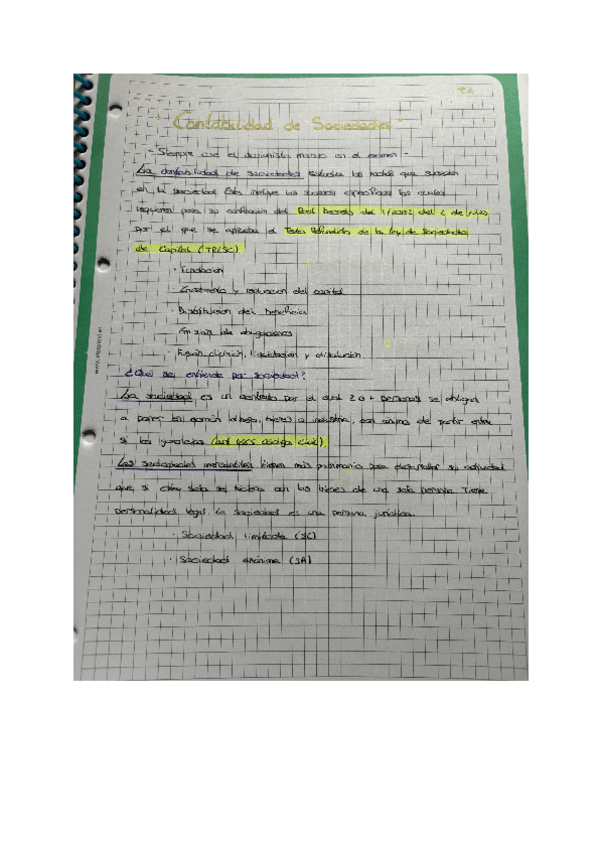 T.1
"Contabilidad de Sociedades"
- Siempre cae el en el examen -
La contabilidad de sociedades estudia los hechos que suceden
en la sociedad. Esta incluye los sucesos específicos los cuales
requieren para su del Real Decreto del 1/2002, del 2 de julio
por el que se aprueba el Texto Refundido de la Ley de Sociedades
de Capital (TRLSC)
· Fundación
· y reducción del capital
· Distribución del beneficio
· Emisión de obligaciones
· Fusión, escisión, liquidación y disolución
¿Qué se entiende por sociedad?
La sociedad es un contrato por el cual 2 o + personas se obligan
a poner en común dinero, bienes o industria, con ánimo de partir entre
sí las ganancias (art código civil).
Las sociedades mercantiles tienen más patrimonio para desarrollar su actividad
que si ésta se con los bienes de una sola persona. Tiene
personalidad legal. La sociedad es una persona jurídica.
· Sociedad limitada
· Sociedad anónima (SA)